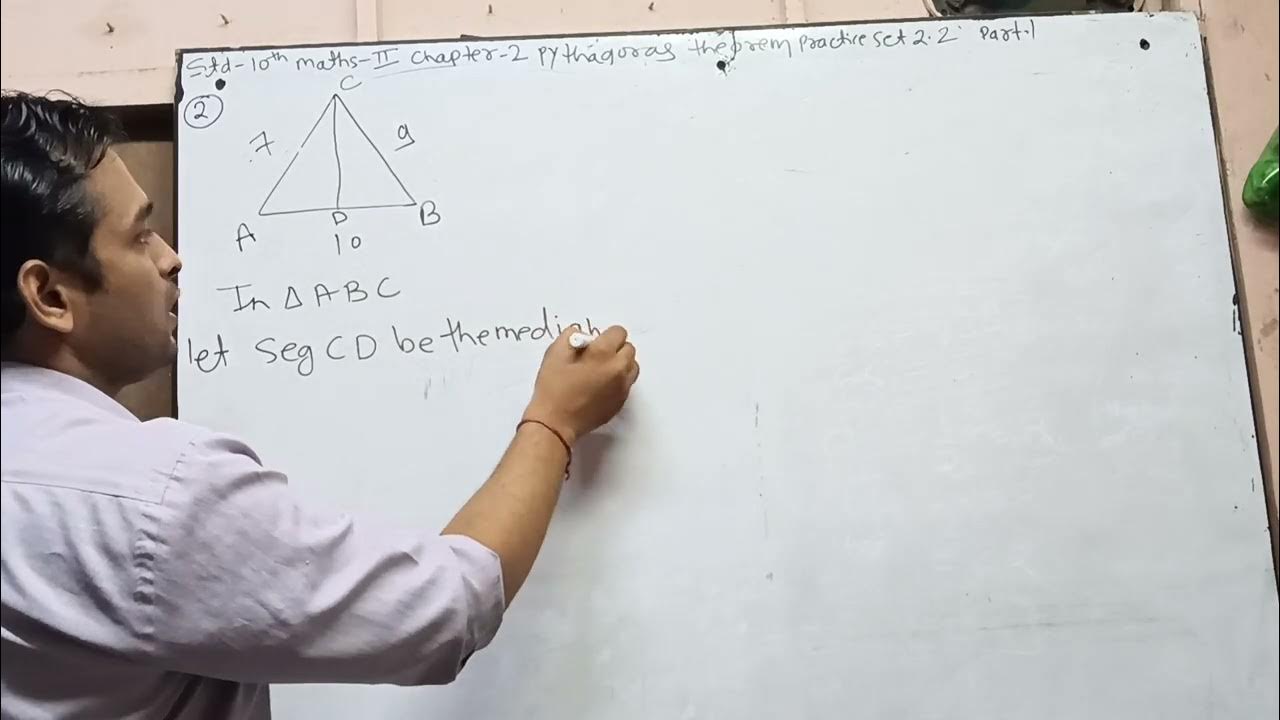 Std-10th maths-II Chapter-2 Pythagoras theorem practice set 2.2 Part.1
2
C
7
9
A
D
B
10
In △ABC
let seg CD be the median